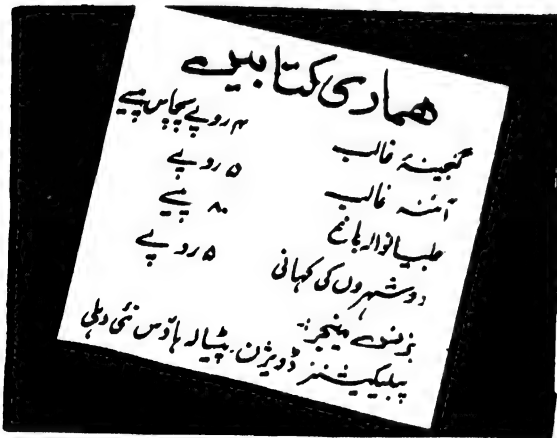 ھماری کتابیں
گنجینۂ غالب ۴ روپے پچاس پیسے
آئنہ غالب ۵ روپے
جلیانوالہ باغ ۸۰ پیسے
دو شہروں کی کہانی ۵ روپے
بزنس مینجر:۔
پبلیکیشنز ڈویژن۔ پٹیالہ ہاؤس نئی دہلی